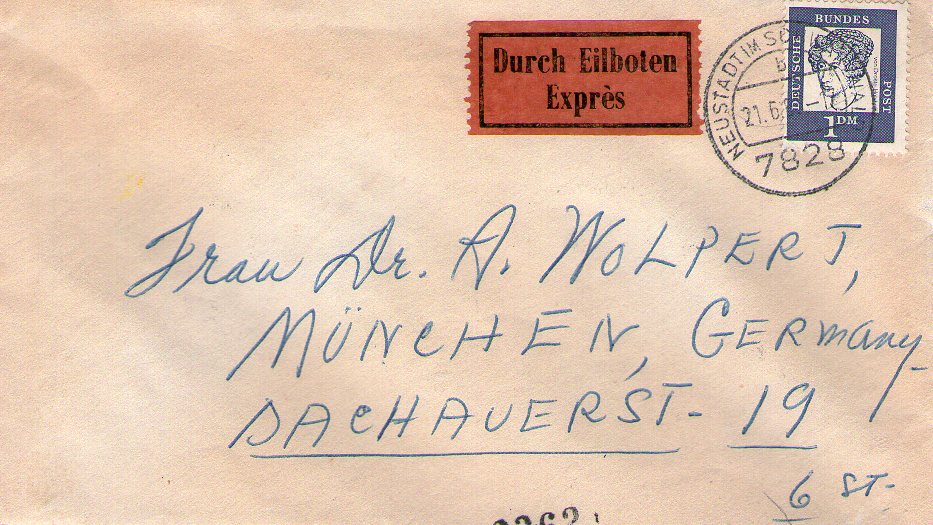 Durch Eilboten
Exprès
DEUTSCHE BUNDES POST
1 DM
NEUSTADT IM
b
21.6
7828
Frau Dr. A. WOLPERT,
MÜNCHEN, GERMANY
DACHAUERST- 19
6 ST-